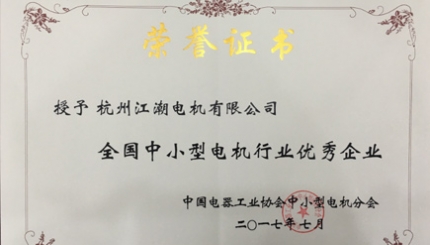 荣誉证书
授予 杭州江潮电机有限公司
全国中小型电机行业优秀企业
中国电器工业协会中小型电机分会
二〇一七年七月